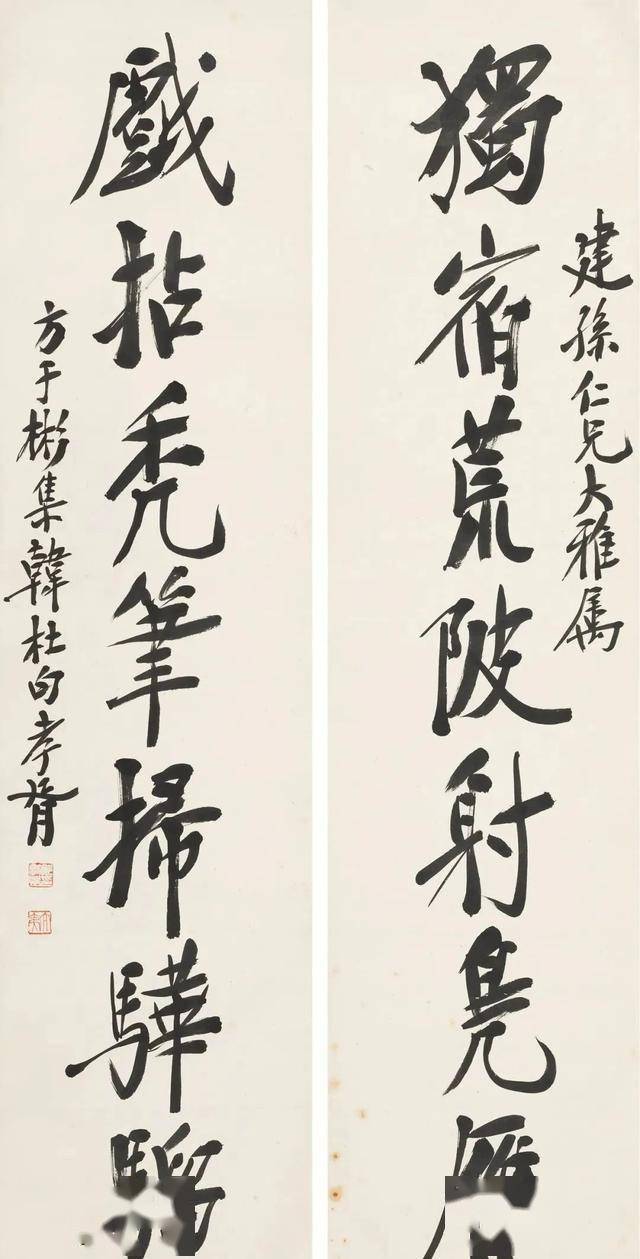 建孫仁兄大雅属
獨宿荒陂射鳧雁
戲拈禿筆掃驊騮
方于彬集韓杜句孝胥